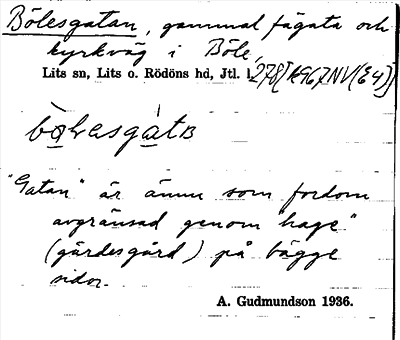 Bölesgatan, gammal fägata och
kyrkväg i Böle,
Lits sn, Lits o. Rödöns hd, Jtl. l. 278 [K967NV(E4)]
"Gatan" är ännu som fordom
avgränsad genom "hage"
(gärdesgård) på bägge
sidor.
A. Gudmundson 1936.